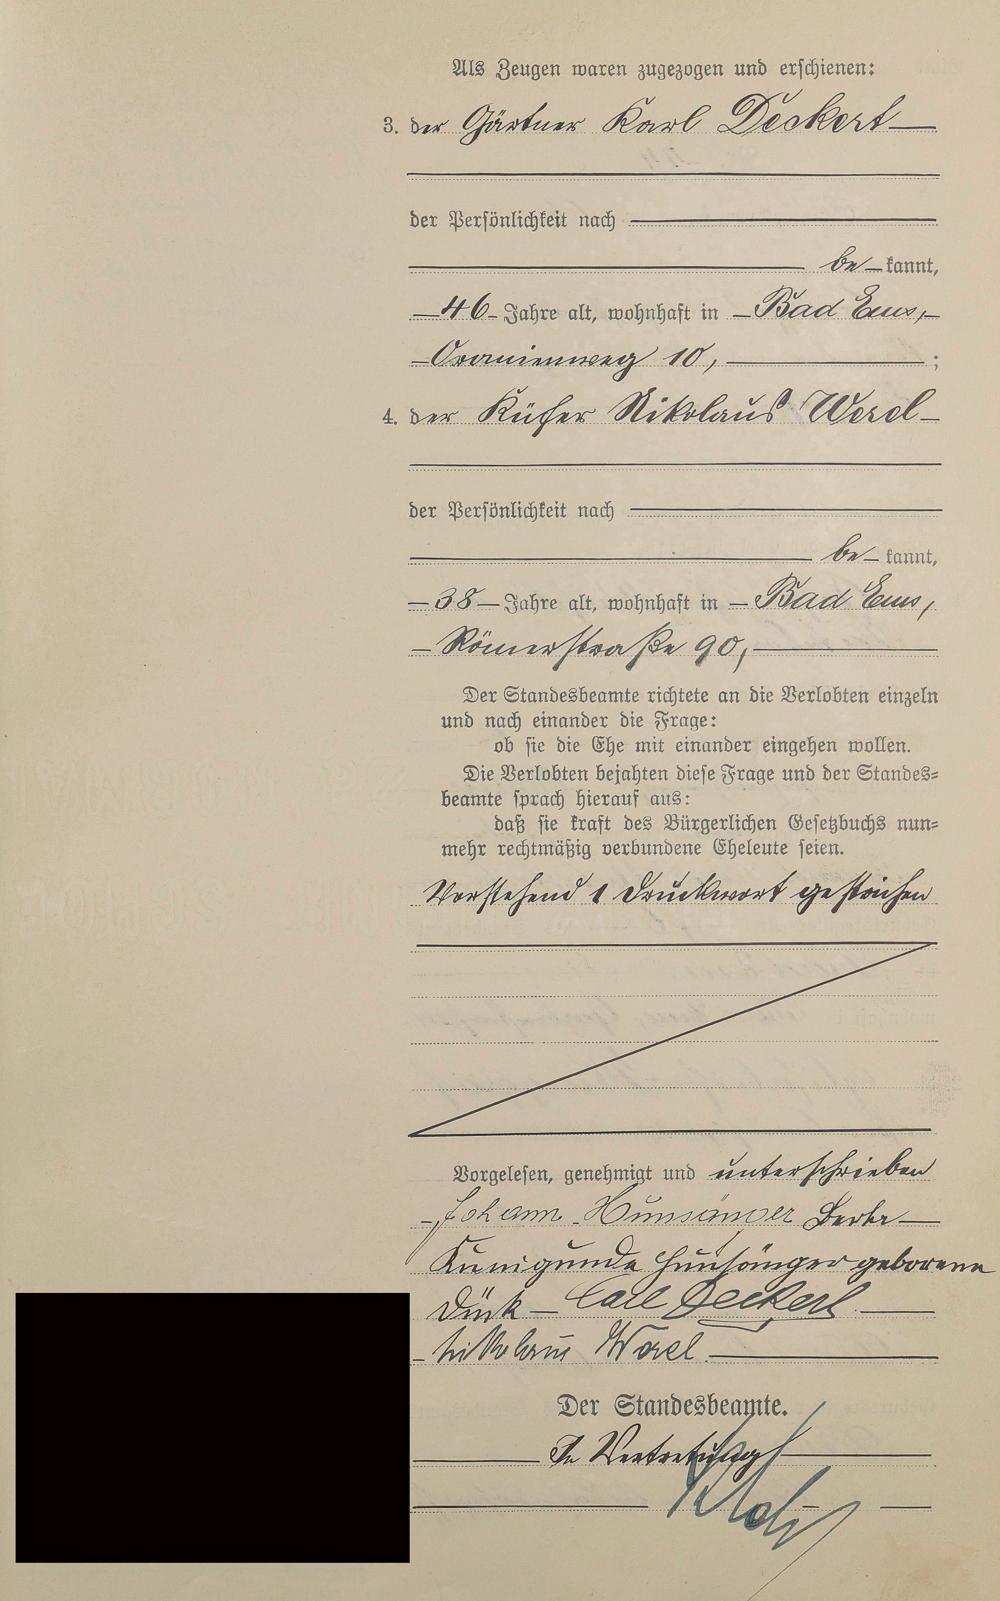 Als Zeugen waren zugezogen und erschienen:
3. der Gärtner Karl Deckert
der Persönlichkeit nach
be kannt,
46 Jahre alt, wohnhaft in Bad Ems,
Oranienweg 10, ;
4. der Küfer Nikolaus Werel
der Persönlichkeit nach
be kannt,
38 Jahre alt, wohnhaft in Bad Ems,
Römerstraße 90,
Der Standesbeamte richtete an die Verlobten einzeln
und nach einander die Frage:
ob sie die Ehe mit einander eingehen wollen.
Die Verlobten bejahten diese Frage und der Standes=
beamte sprach hierauf aus:
daß sie kraft des Bürgerlichen Gesetzbuchs nun=
mehr rechtmäßig verbundene Eheleute seien.
Vorstehend 1 Druckwort gestrichen
Vorgelesen, genehmigt und unterschrieben
Johann Hunsänger
Kunigunde Hunsänger geborene
Dück Carl Deckert
Nikolaus
Der Standesbeamte.
In Vertretung